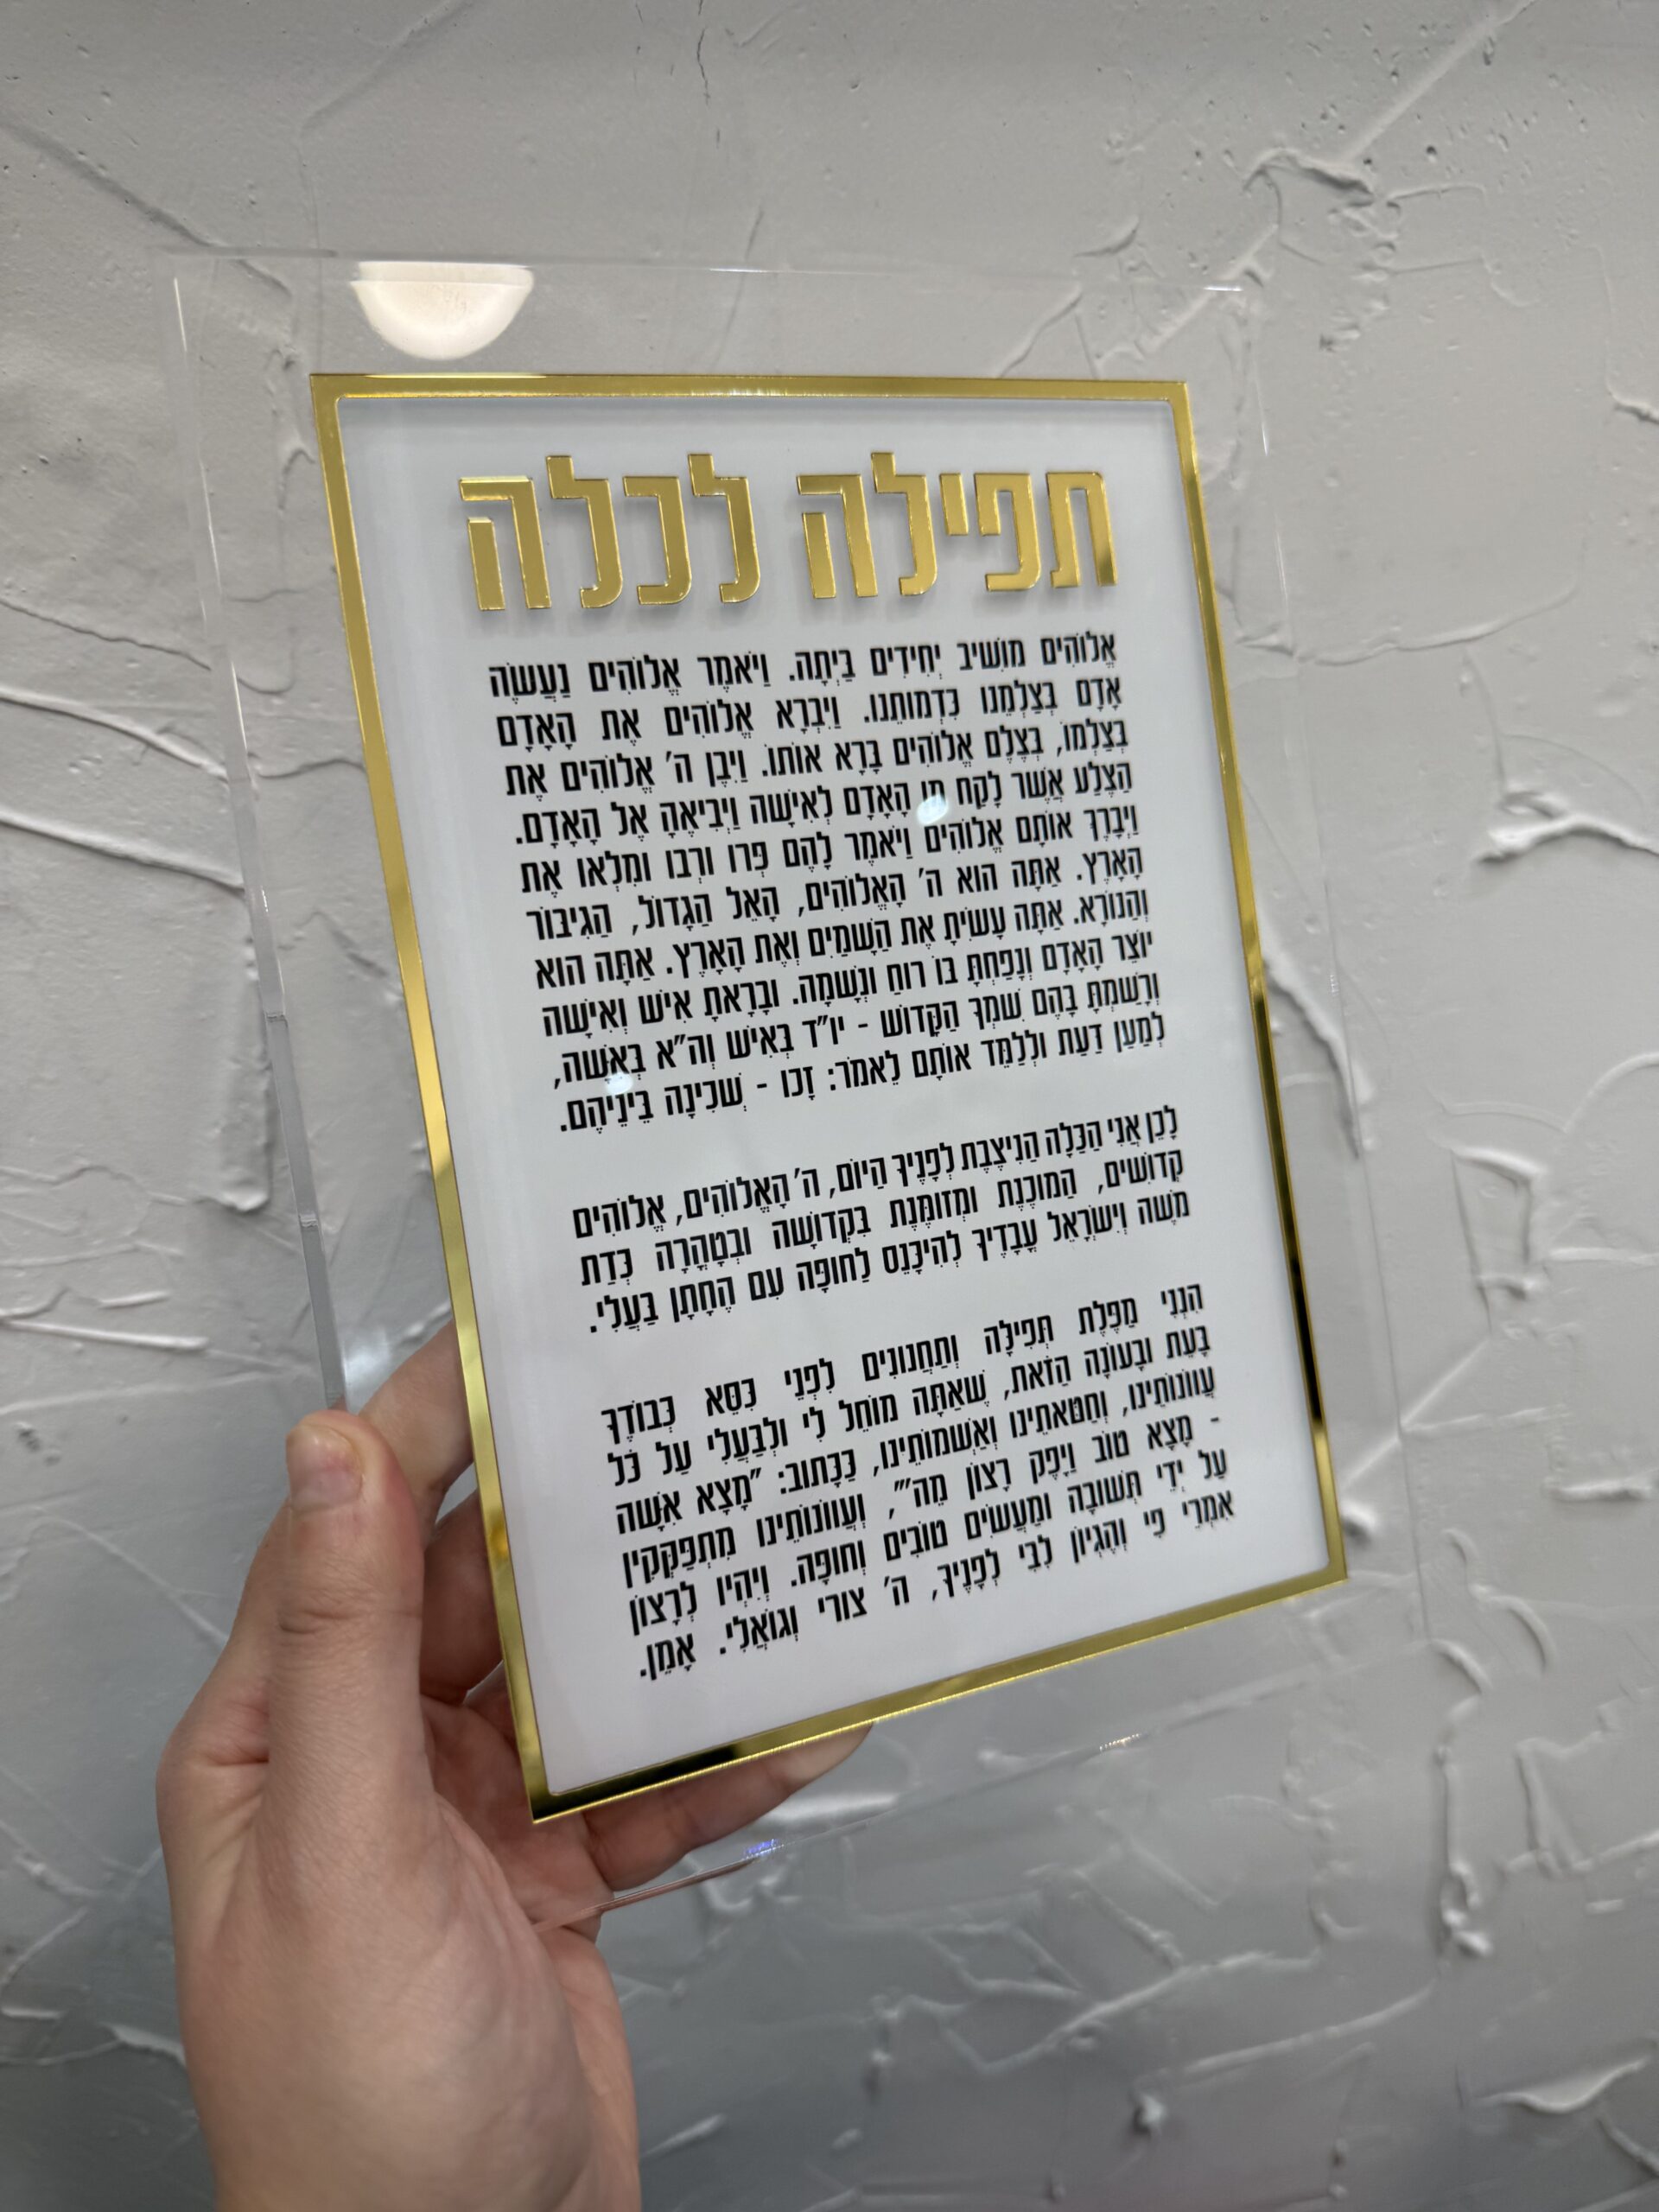 תפילה לכלה
אֱלוֹהִים מוֹשִׁיב יְחִידִים בַּיְתָה. וַיֹּאמֶר אֱלוֹהִים נַעֲשֶׂה
אָדָם בְּצַלְמֵנוּ כִּדְמוּתֵנוּ. וַיִּבְרָא אֱלוֹהִים אֶת הָאָדָם
בְּצַלְמוֹ, בְּצֶלֶם אֱלוֹהִים בָּרָא אוֹתוֹ. וַיִּבֶן ה' אֱלוֹהִים אֶת
הַצֶּלַע אֲשֶׁר לָקַח מִן הָאָדָם לְאִישָׁה וַיְבִיאֶהָ אֶל הָאָדָם.
וַיְבָרֶךְ אוֹתָם אֱלוֹהִים וַיֹּאמֶר לָהֶם פְּרוּ וּרְבוּ וּמִלְאוּ אֶת
הָאָרֶץ. אַתָּה הוּא ה' הָאֱלוֹהִים, הָאֵל הַגָּדוֹל, הַגִּיבּוֹר
וְהַנּוֹרָא. אַתָּה עָשִׂיתָ אֶת הַשָּׁמַיִם וְאֶת הָאָרֶץ. אַתָּה הוּא
יוֹצֵר הָאָדָם וְנָפַחְתָּ בּוֹ רוּחַ וּנְשָׁמָה. וּבָרָאתָ אִישׁ וְאִישָׁה
וְרָשַׁמְתָּ בָּהֶם שִׁמְךָ הַקָּדוֹשׁ - יוּ"ד בְּאִישׁ וְה"א בְּאִשָּׁה,
לְמַעַן דַּעַת וּלְלַמֵּד אוֹתָם לֵאמֹר: זָכוּ - שְׁכִינָה בֵּינֵיהֶם.
לָכֵן אֲנִי הַכַּלָּה הַנִּיצֶבֶת לְפָנֶיךָ הַיּוֹם, ה' הָאֱלוֹהִים, אֱלוֹהִים
קְדוֹשִׁים, הַמּוּכֶנֶת וּמְזוּמֶּנֶת בִּקְדוּשָׁה וּבְטָהֳרָה כְּדַת
מֹשֶׁה וְיִשְׂרָאֵל עֲבָדֶיךָ לְהִיכָּנֵס לַחוּפָּה עִם הֶחָתָן בַּעֲלִי.
הִנְנִי מַפֶּלֶת תְּפִילָּה וְתַחֲנוּנִים לִפְנֵי כִּסֵּא כְּבוֹדֶךָ
בָּעֵת וּבָעוֹנָה הַזֹּאת, שֶׁאַתָּה מוֹחֵל לִי וּלְבַעֲלִי עַל כָּל
עֲוונוֹתֵינוּ, וְחַטֹּאתֵינוּ וְאַשְׁמוֹתֵינוּ, כַּכָּתוּב: "מָצָא אִשָּׁה
- מָצָא טוֹב וַיָּפֶק רָצוֹן מֵה'", וַעֲוונוֹתֵינוּ מִתְפַּקְּקִין
עַל יְדֵי תְּשׁוּבָה וּמַעֲשִׂים טוֹבִים וְחוּפָּה. וְיִהְיוּ לְרָצוֹן
אִמְרֵי פִי וְהֶגְיוֹן לִבִּי לְפָנֶיךָ, ה' צוּרִי וְגוֹאֲלִי. אָמֵן.